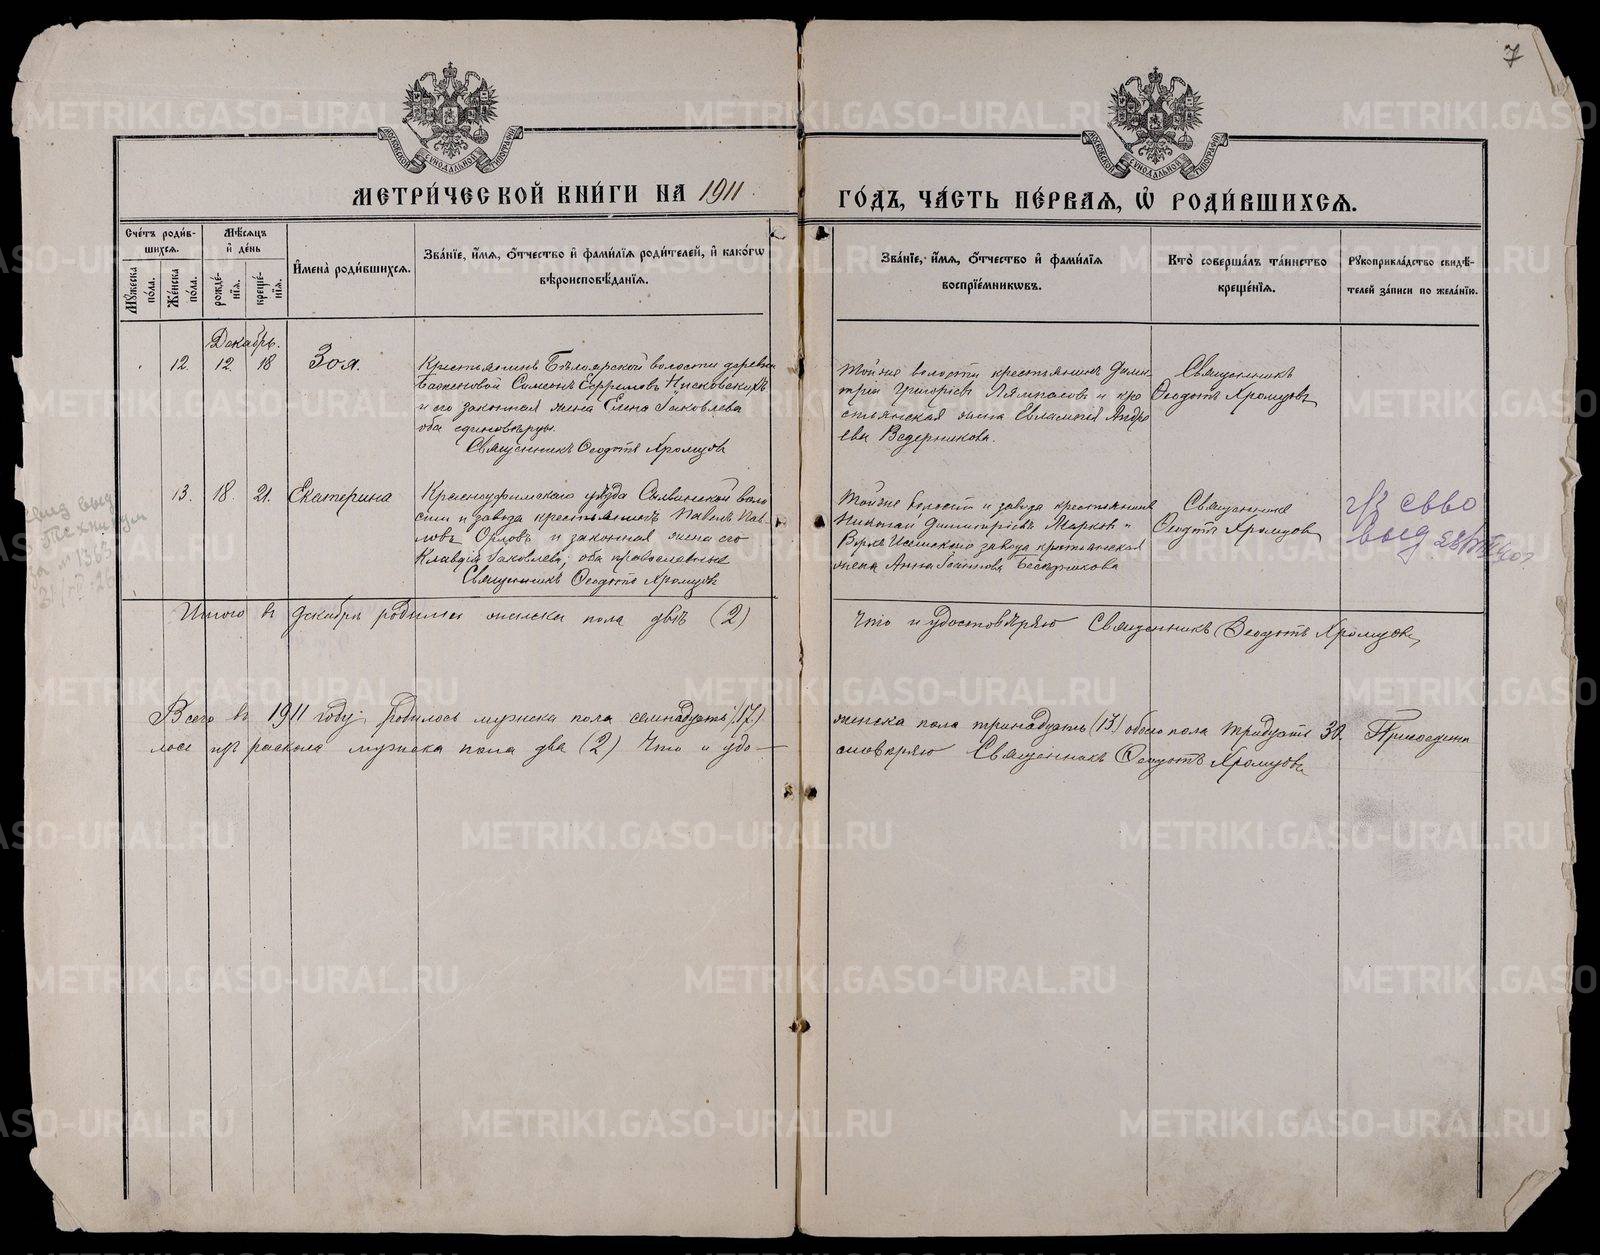 7
МЕТРИ́ЧЕСКОЙ КНИ́ГИ НА 1911
ГО́ДЪ, ЧА́СТЬ ПЕ́РВАЯ, Ѽ РОДИ́ВШИХСЯ.
Сче́тъ роди́в-
шихся.
Мꙋ́жеска по́ла.
Же́нска по́ла.
Мѣ́сяцъ
и҆ де́нь
рожде́-
нїя.
креще́-
нїя.
И҆мена̀ роди́вшихся.
Зва́нїе, и҆́мя, о҆́тчество и҆ фами́лїя роди́телей, и҆ како́гѡ
вѣроисповѣ́данїя.
Зва́нїе, и҆́мя, о҆́тчество и҆ фами́лїя
воспрїе́мникѡвъ.
Кто̀ соверша́лъ та́инство
креще́нїя.
Рꙋкоприкла́дство свидѣ́-
телей за́писи по жела́нїю.
Декабрь.
12. 12. 18 Зоя.
Крестьянинъ Бѣлоярской волости деревни
Баженовой Симеонъ Ефремовъ
и его законная жена Елена Іаковлева
оба единовѣрцы.
Священникъ Ѳеодотъ Хромцовъ
Той же волости крестьянинъ Дими-
трій Григорьевъ и кре
стьянская жена Евлампія Андре
ева Ведерникова.
Священникъ
Ѳеодотъ Хромцовъ
13. 18. 21. Екатерина
Красноуфимскаго уѣзда Сылвинской воло
сти и завода крестьянинъ Павелъ Пав-
ловъ Орловъ и законная жена его
Клавдія Іаковлева, оба православные
Священникъ Ѳеодотъ Хромцовъ
Той же волости и завода крестьянинъ
Николай Димитріевъ Марковъ и
Верхъ Исетскаго завода крестьянская
жена Анна
Священникъ
Ѳеодотъ Хромцовъ
св-во
выд
Итого въ декабрѣ родилось женска пола двѣ (2)
Что и удостовѣряю Священникъ Ѳеодотъ Хромцовъ
Всего въ 1911 году родилось мужеска пола семнадцать (17)
женска пола тринадцать (13) обоего пола тридцать 30. Присоедини
лось изъ раскола мужеска пола два (2) Что и удо-
стовѣряю Священникъ Ѳеодотъ Хромцовъ
METRIKI.GASO-URAL.RU